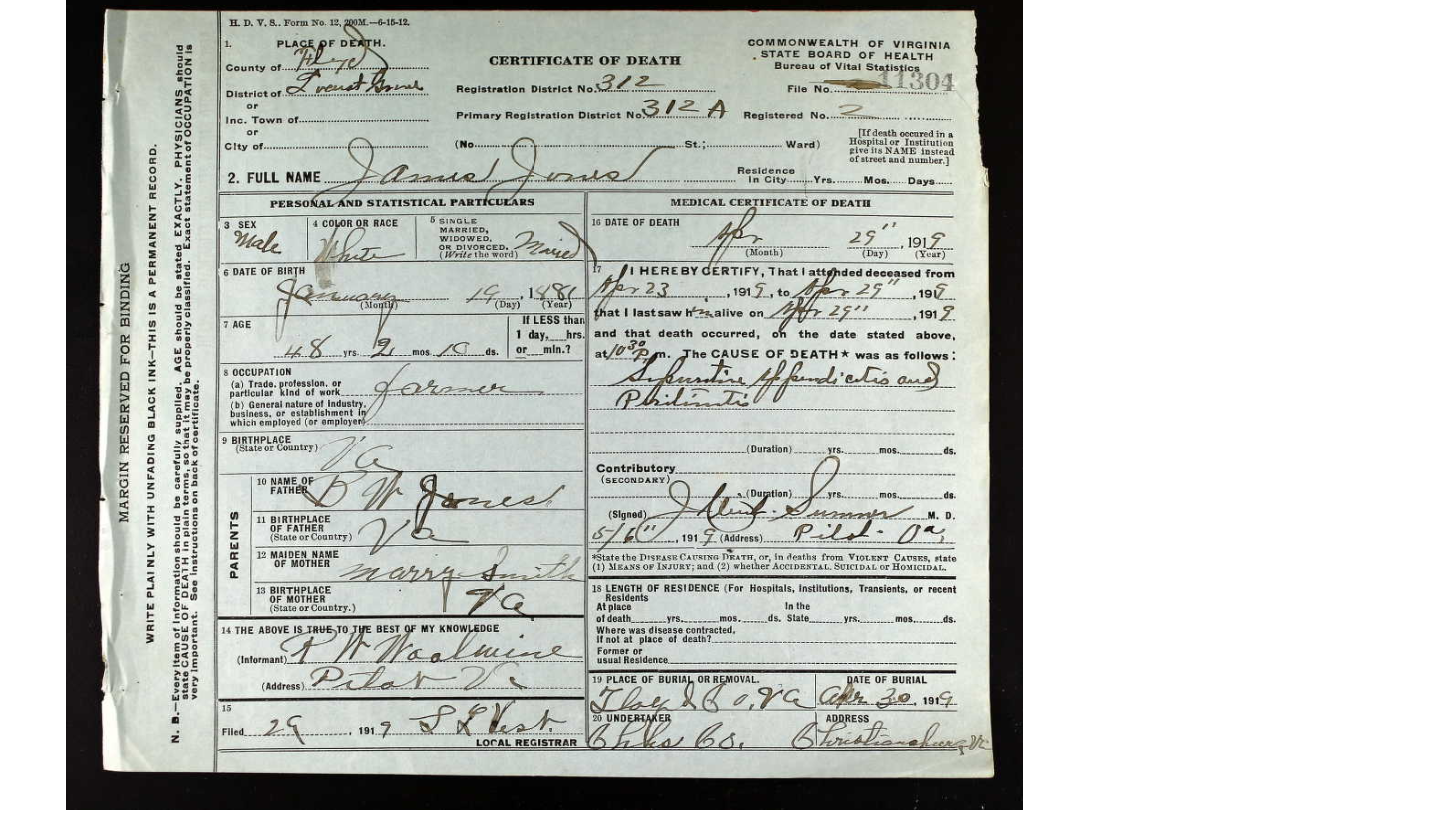 H. D. V. S.. Form No. 12, 200M.—6-15-12.
1. PLACE OF DEATH.
County of Floyd
District of Locust Grove
or
Inc. Town of
or
City of
CERTIFICATE OF DEATH
Registration District No. 312
Primary Registration District No. 312 A
(No. St.; Ward)
COMMONWEALTH OF VIRGINIA
STATE BOARD OF HEALTH
Bureau of Vital Statistics
File No. 11304
Registered No. 2
[If death occured in a
Hospital or Institution
give its NAME instead
of street and number.]
2. FULL NAME James Jones
Residence
In City Yrs. Mos. Days
PERSONAL AND STATISTICAL PARTICULARS
3 SEX
Male
4 COLOR OR RACE
White
5 SINGLE
MARRIED,
WIDOWED,
OR DIVORCED.
(Write the word) Maried
6 DATE OF BIRTH
January 19, 1
(Month) (Day) (Year)
7 AGE
48 yrs. 2 mos. 10 ds.
If LESS than
1 day, hrs.
or min.?
8 OCCUPATION
(a) Trade, profession, or
particular kind of work farmer
(b) General nature of Industry,
business, or establishment in
which employed (or employer)
9 BIRTHPLACE
(State or Country) Va
PARENTS
10 NAME OF
FATHER B W Jones
11 BIRTHPLACE
OF FATHER
(State or Country) Va
12 MAIDEN NAME
OF MOTHER marry Smith
13 BIRTHPLACE
OF MOTHER
(State or Country.) Va
14 THE ABOVE IS TRUE TO THE BEST OF MY KNOWLEDGE
(Informant) W Woolwine
(Address) Pilot Va
15
Filed 29, 1919 S L Vest.
LOCAL REGISTRAR
MEDICAL CERTIFICATE OF DEATH
16 DATE OF DEATH
Apr 29", 1919
(Month) (Day) (Year)
17 I HEREBY CERTIFY, That I attended deceased from
Apr 23, 1919, to Apr 29", 1919
that I last saw him alive on Apr 29", 1919
and that death occurred, on the date stated above,
at 10 30 P. m. The CAUSE OF DEATH★ was as follows:
Supurative Appendicitis and
(Duration) yrs. mos. ds.
Contributory
(SECONDARY)
(Duration) yrs. mos. ds.
(Signed) Sumner M. D.
5/6", 1919 (Address) Pilot Va,
*State the DISEASE CAUSING DEATH, or, in deaths from VIOLENT CAUSES, state
(1) MEANS OF INJURY; and (2) whether ACCIDENTAL SUICIDAL or HOMICIDAL.
18 LENGTH OF RESIDENCE (For Hospitals, Institutions, Transients, or recent
Residents
At place In the
of death yrs. mos. ds. State yrs. mos. ds.
Where was disease contracted,
if not at place of death?
Former or
usual Residence
19 PLACE OF BURIAL OR REMOVAL.
Floyd Co, Va
DATE OF BURIAL
Apr 30, 1919
20 UNDERTAKER
Co.
ADDRESS
Christiansburg, Va
MARGIN RESERVED FOR BINDING
WRITE PLAINLY WITH UNFADING BLACK INK—THIS IS A PERMANENT RECORD.
N. B.—Every item of Information should be carefully supplied. AGE should be stated EXACTLY. PHYSICIANS should
state CAUSE OF DEATH in plain terms, so that it may be properly classified. Exact statement of OCCUPATION is
very important. See instructions on back of certificate.